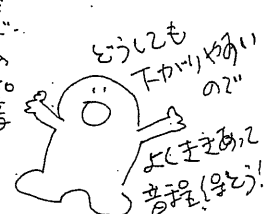 どうしても
下がりやすい
ので
よくききあって
音程保とう!